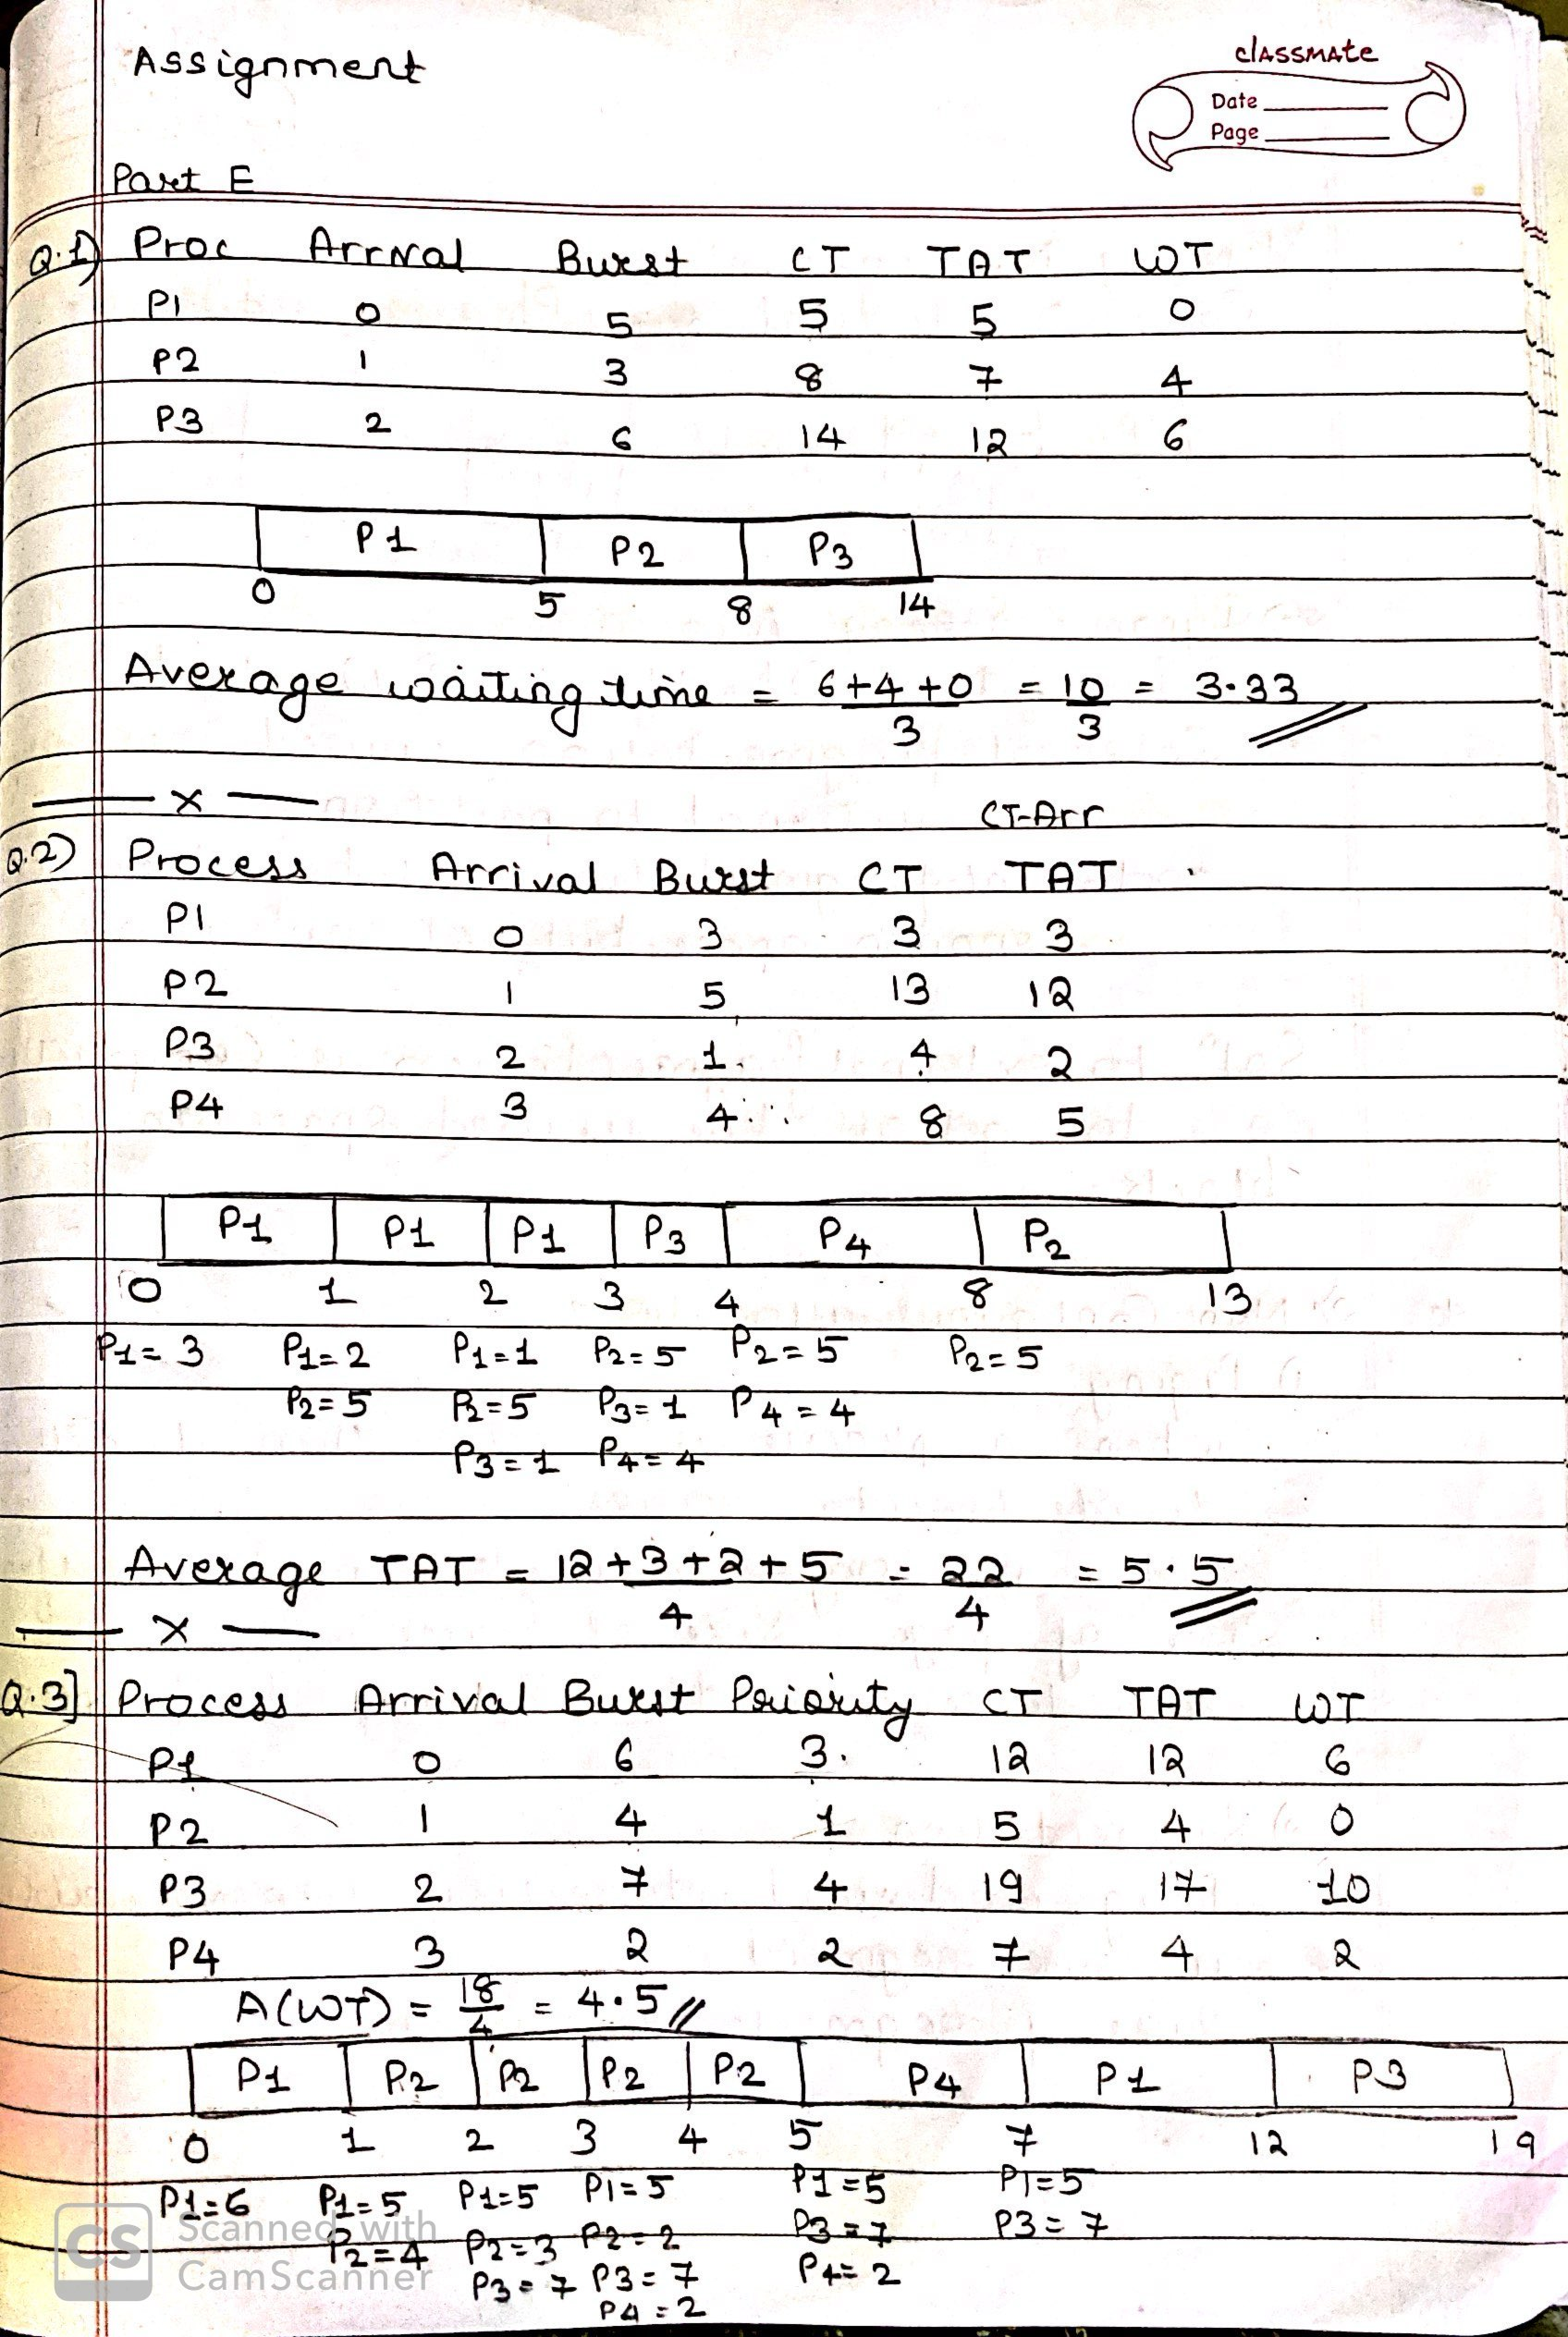 Assignment
classmate
Date
Page
Part E
Q.1) Proc Arrival Burst CT TAT WT
P1 0 5 5 5 0
P2 1 3 8 7 4
P3 2 6 14 12 6
P1 P2 P3
0 5 8 14
Average waiting time = 6+4+0 = 10 = 3.33
3 3
x
CT-Arr
Q.2) Process Arrival Burst CT TAT
P1 0 3 3 3
P2 1 5 13 12
P3 2 1 4 2
P4 3 4 8 5
P1 P1 P1 P3 P4 P2
0 1 2 3 4 8 13
P1=3 P1=2 P1=1 P2=5 P2=5 P2=5
P2=5 P2=5 P3=1 P4=4
P3=1 P4=4
Average TAT = 12+3+2+5 = 22 = 5.5
4 4
x
Q.3] Process Arrival Burst Priority CT TAT WT
P1 0 6 3. 12 12 6
P2 1 4 1 5 4 0
P3 2 7 4 19 17 10
P4 3 2 2 7 4 2
A(WT) = 18/4 = 4.5
P1 P2 P2 P2 P2 P4 P1 P3
0 1 2 3 4 5 7 12 19
P1=6 P1=5 P1=5 P1=5 P1=5 P1=5
P2=4 P2=3 P2=2 P3=7 P3=7
P3=7 P3=7 P4=2
P4=2
CS Scanned with
CamScanner